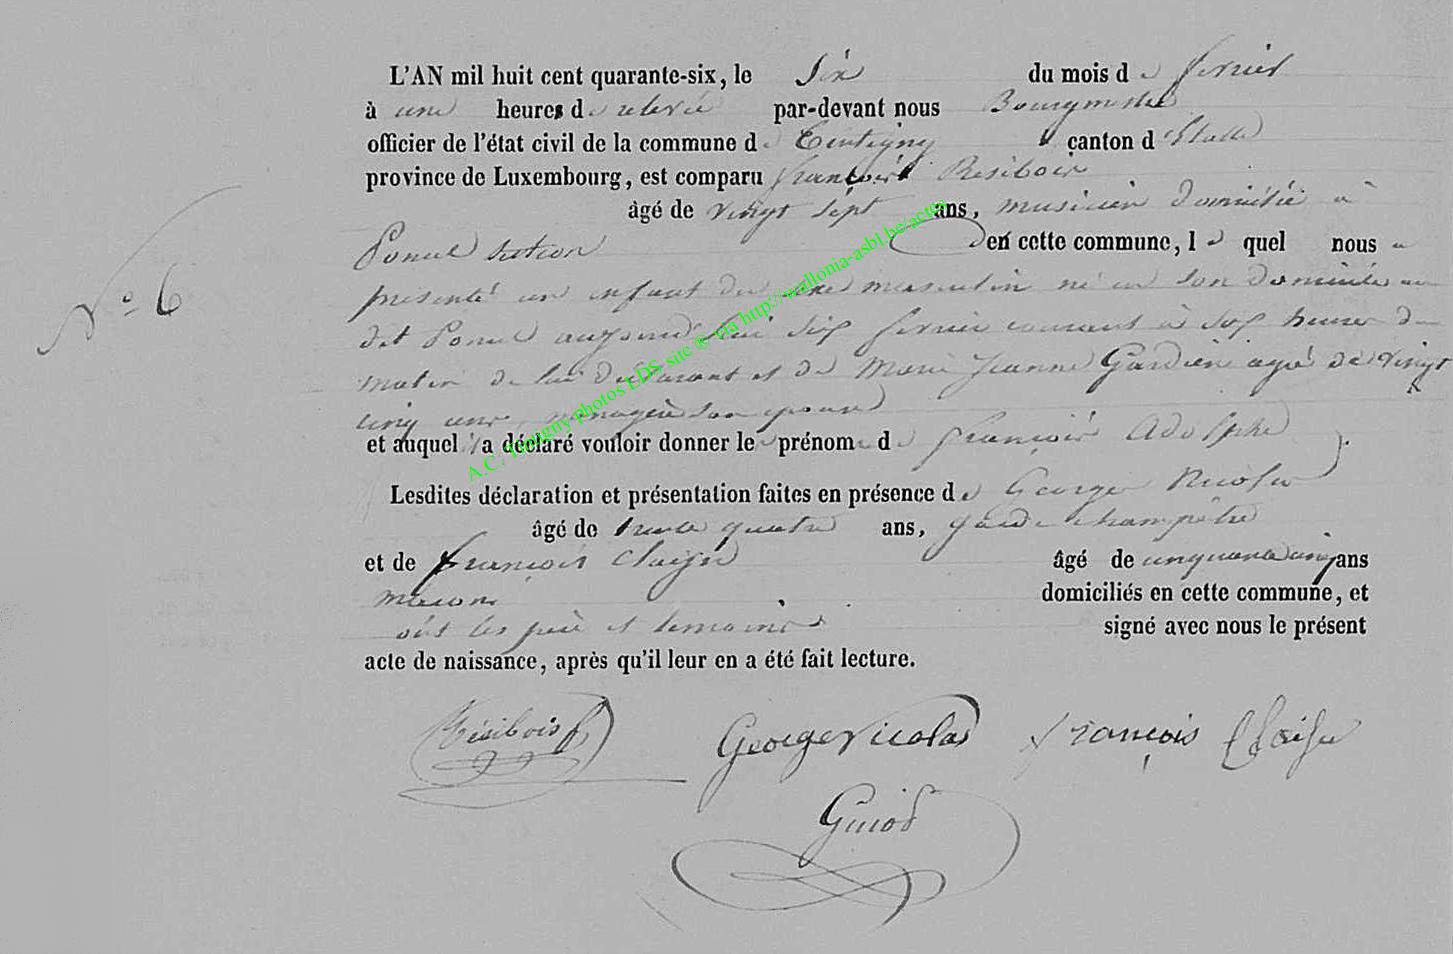 L'AN mil huit cent quarante-six, le Six du mois de fevrier
à une heures de relevée par-devant nous Bourgmestre
officier de l'état civil de la commune de Tintigny canton d'Etalle
province de Luxembourg, est comparu françois Résibois
âgé de vingt sept ans, musicien domicilié à
N° 6
Poncel section den cette commune, le quel nous a
présenté un enfant du sexe masculin né en son domicile au
dit Poncel aujourd'hui Six fevrier courant à Six heures du
matin de lui déclarant et de Marie Jeanne Gardien agée de vingt
cinq ans, ménagère son epouse
et auquel il a déclaré vouloir donner le prénom de françois Adolphe
Lesdites déclaration et présentation faites en présence de George Nicolas
âgé de trente quatre ans, garde champêtre
et de françois Claisse âgé de cinquante cinq ans
macon domiciliés en cette commune, et
ont les père et temoins signé avec nous le présent
acte de naissance, après qu'il leur en a été fait lecture.
Résibois f George Nicolas françois Claisse
Guiot
A.C. Tintigny photos LDS site @ via http://wallonia-asbl.be/actes